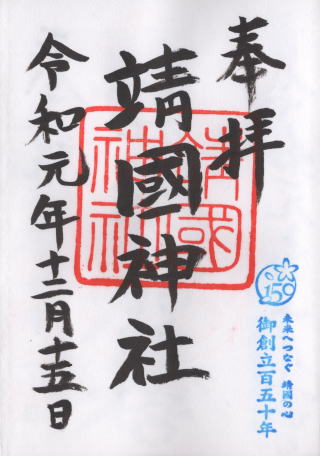 奉拝
靖國神社
靖國神社
令和元年十二月十五日
150
未来へつなぐ 靖國の心
御創立百五十年